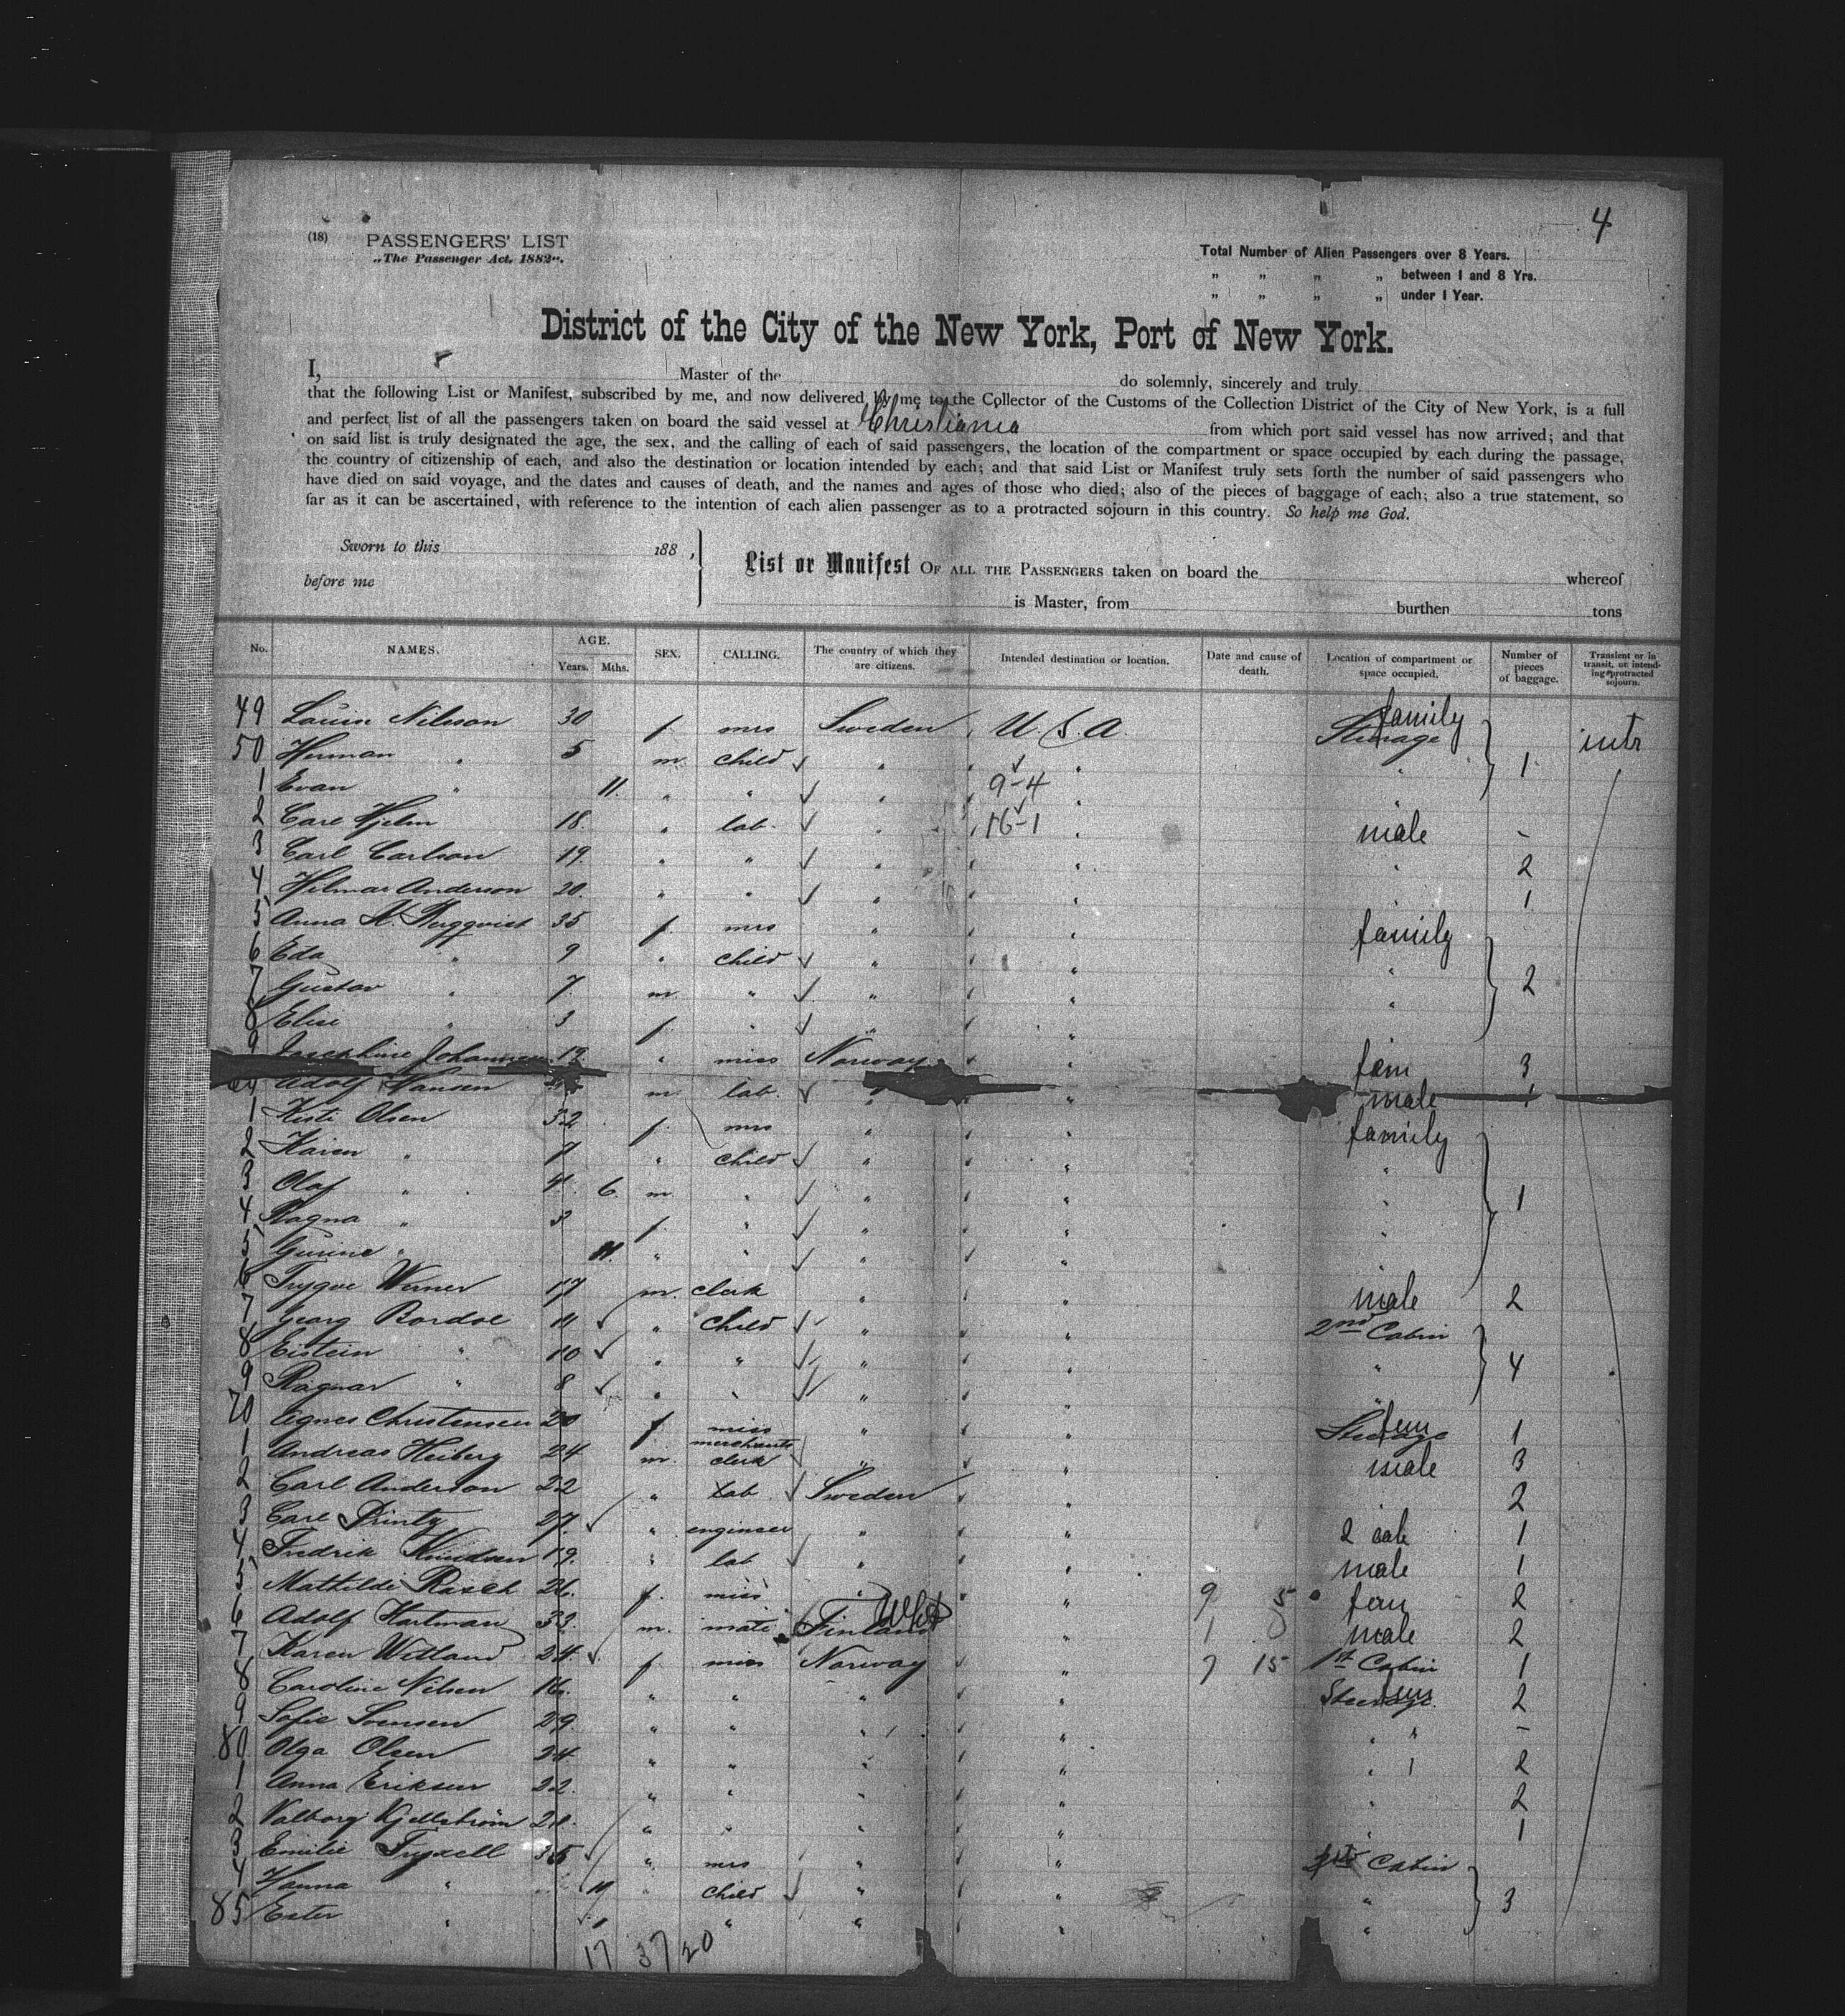 4
(18) PASSENGERS' LIST
„The Passenger Act, 1882“.
Total Number of Alien Passengers over 8 Years.
„ „ „ „ between 1 and 8 Yrs.
„ „ „ „ under 1 Year.
District of the City of the New York, Port of New York.
I, Master of the do solemnly, sincerely and truly
that the following List or Manifest, subscribed by me, and now delivered by me to the Collector of the Customs of the Collection District of the City of New York, is a full
and perfect list of all the passengers taken on board the said vessel at Christiania from which port said vessel has now arrived; and that
on said list is truly designated the age, the sex, and the calling of each of said passengers, the location of the compartment or space occupied by each during the passage,
the country of citizenship of each, and also the destination or location intended by each; and that said List or Manifest truly sets forth the number of said passengers who
have died on said voyage, and the dates and causes of death, and the names and ages of those who died; also of the pieces of baggage of each; also a true statement, so
far as it can be ascertained, with reference to the intention of each alien passenger as to a protracted sojourn in this country. So help me God.
Sworn to this 188 ,
before me
List or Manifest OF ALL THE PASSENGERS taken on board the whereof
is Master, from burthen tons
No. NAMES. AGE. Years. Mths. SEX. CALLING. The country of which they are citizens. Intended destination or location. Date and cause of death. Location of compartment or space occupied. Number of pieces of baggage. Transient or in transit, or intending protracted sojourn.
49 Louise Nilsson 30 f. mrs Sweden U.S.A. family Steerage intr
50 Herman " 5 m. child " " " 1
1 Evan " 11. " " " 9-4 " "
2 Carl Hjelm 18. " lab. " 16-1 " male -
3 Carl Carlson 19. " " " " " 2
4 Hilmar Anderson 20. " " " " " 1
5 Anna K. Bergqvist 35 f. mrs " " family
6 Eda " 9 " child " " "
7 Gustav " 7. m. " " " " 2
8 Elise " 3 f. " " "
9 Josephine Johannesen 19. " miss Norway " fam 3
60 Adolf Hansen m. lab. " " male 1
1 Kisti Olsen 32 f. mrs " " family
2 Karen " 7 " child " " "
3 Olaf " 4 6. m " " " " 1
4 Ragna " 3 f. " " " "
5 Gurine " 11. " " " "
6 Trygve Werner 17 m. clerk " " male 2
7 Georg Bordoe 11 " child " " 2nd Cabin
8 Eistein " 10 " " " " " 4
9 Ragnar " 8 " " " " "
70 Agnes Christensen 20 f miss " " Steerage fem 1
1 Andreas Heiberg 24 m. merchants clerk " " male 3
2 Carl Anderson 22 " lab Sweden " " 2
3 Carl Printz 27. " engineer " " 2 cab 1
4 Fredrik Knudsen 19. " lab " " male 1
5 Mathilde Rasch 26. f. miss " " 9 5 fem 2
6 Adolf Hartman 33. m. mate Finland " 1 0 male 2
7 Karen Witland 24. f. miss Norway " 7 15 1st Cabin 1
8 Caroline Nilsen 16. " " " " Steerage fem 2
9 Sofie Svensen 29 " " " " " " -
80 Olga Olsen 24 " " " " " 2
1 Anna Eriksen 22. " " " " " 2
2 Valborg Kjellström 21. " " " " " 1
3 Emilie Fryxell 35 " mrs " " Cabin
4 Hanna " 11 " child " " " 3
85 Ester " " " " "
17 37 20